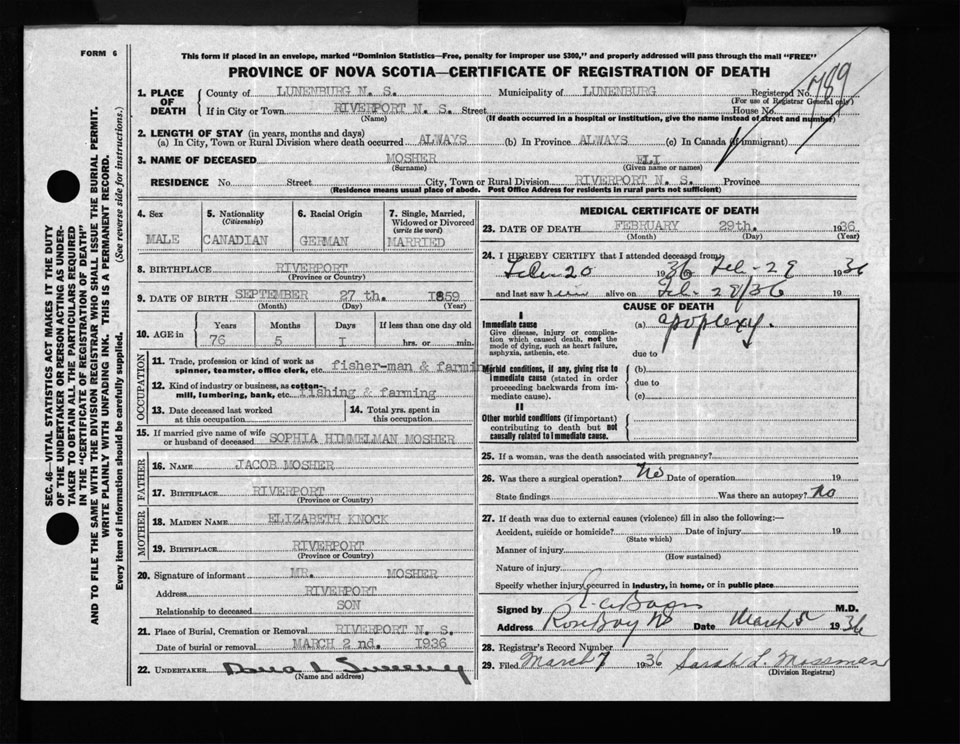 FORM 6
This form if placed in an envelope, marked "Dominion Statistics—Free, penalty for improper use $300," and properly addressed will pass through the mail "FREE"
PROVINCE OF NOVA SCOTIA—CERTIFICATE OF REGISTRATION OF DEATH
789
1. PLACE OF DEATH
County of LUNENBURG N. S. Municipality of LUNENBURG Registered No.
(For use of Registrar General only)
If in City or Town RIVERPORT N. S. Street House No.
(Name) (If death occurred in a hospital or institution, give the name instead of street and number)
2. LENGTH OF STAY (in years, months and days)
(a) In City, Town or Rural Division where death occurred ALWAYS (b) In Province ALWAYS (c) In Canada (if immigrant)
3. NAME OF DECEASED MOSHER ELI
(Surname) (Given name or names)
RESIDENCE No Street City, Town or Rural Division RIVERPORT N. S. Province
(Residence means usual place of abode. Post Office Address for residents in rural parts not sufficient)
SEC. 46—VITAL STATISTICS ACT MAKES IT THE DUTY
OF THE UNDERTAKER OR PERSON ACTING AS UNDER-
TAKER TO OBTAIN ALL THE PARTICULARS REQUIRED
IN THE "CERTIFICATE OF REGISTRATION OF DEATH"
AND TO FILE THE SAME WITH THE DIVISION REGISTRAR WHO SHALL ISSUE THE BURIAL PERMIT.
WRITE PLAINLY WITH UNFADING INK. THIS IS A PERMANENT RECORD.
Every item of information should be carefully supplied. (See reverse side for instructions.)
4. Sex
MALE
5. Nationality
(Citizenship)
CANADIAN
6. Racial Origin
GERMAN
7. Single, Married,
Widowed or Divorced
(write the word)
MARRIED
8. BIRTHPLACE RIVERPORT
(Province or Country)
9. DATE OF BIRTH SEPTEMBER 27 th. 1859
(Month) (Day) (Year)
10. AGE in Years Months Days If less than one day old
76 5 I hrs. or min.
OCCUPATION
11. Trade, profession or kind of work as
spinner, teamster, office clerk, etc. fisher-man & farming
12. Kind of industry or business, as cotton-
mill, lumbering, bank, etc. fishing & farming
13. Date deceased last worked
at this occupation
14. Total yrs. spent in
this occupation
15. If married give name of wife
or husband of deceased SOPHIA HIMMELMAN MOSHER
FATHER
16. NAME JACOB MOSHER
17. BIRTHPLACE RIVERPORT
(Province or Country)
MOTHER
18. MAIDEN NAME ELIZABETH KNOCK
19. BIRTHPLACE RIVERPORT
(Province or Country)
20. Signature of informant MR. MOSHER
Address RIVERPORT
Relationship to deceased SON
21. Place of Burial, Cremation or Removal RIVERPORT N. S.
Date of burial or removal MARCH 2 nd. 1936
22. UNDERTAKER
(Name and address)
MEDICAL CERTIFICATE OF DEATH
23. DATE OF DEATH FEBRUARY 29th. 1936
(Month) (Day) (Year)
24. I HEREBY CERTIFY that I attended deceased from
Feb 20 1936 Feb - 29 1936
and last saw him alive on Feb. 28/36 19
CAUSE OF DEATH
I
Immediate cause
Give disease, injury or complica-
tion which caused death, not the
mode of dying, such as heart failure,
asphyxia, asthenia, etc.
(a) apoplexy.
due to
Morbid conditions, if any, giving rise to
immediate cause (stated in order
proceeding backwards from im-
mediate cause).
(b)
due to
(c)
II
Other morbid conditions (if important)
contributing to death but not
causally related to immediate cause.
25. If a woman, was the death associated with pregnancy?
26. Was there a surgical operation? No Date of operation 19
State findings Was there an autopsy? No
27. If death was due to external causes (violence) fill in also the following:—
Accident, suicide or homicide? Date of injury 19
(State which)
Manner of injury
(How sustained)
Nature of injury
Specify whether injury occurred in industry, in home, or in public place
Signed by M.D.
Address Rose Bay NS Date March 1936
28. Registrar's Record Number
29. Filed March 7 1936 Sarah L. Mossman
(Division Registrar)